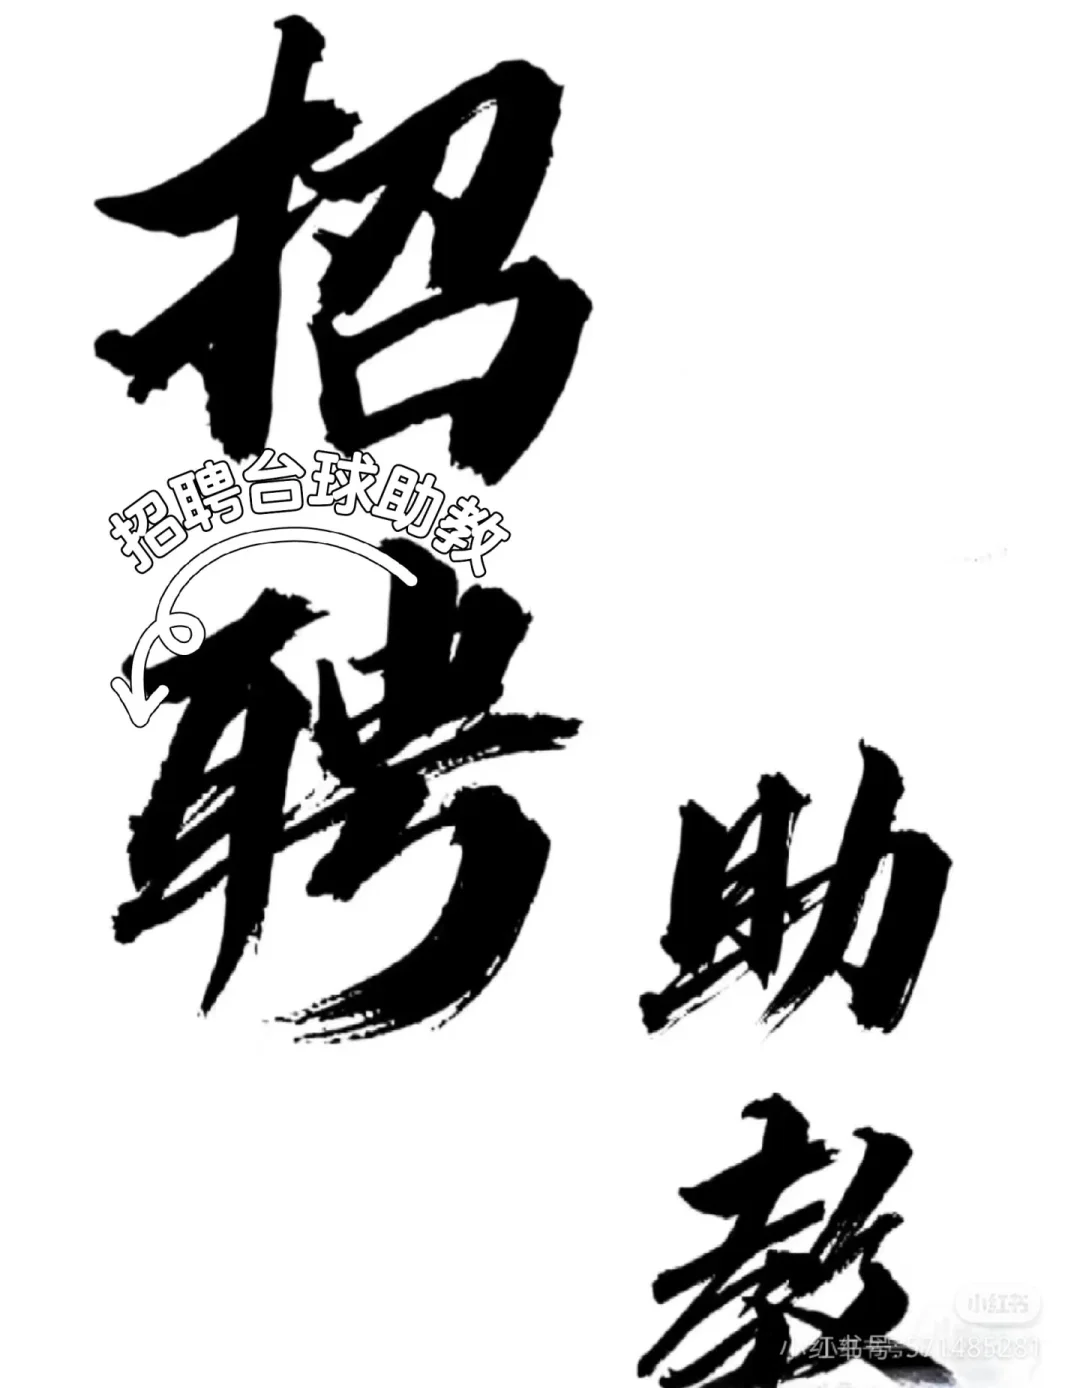 招聘
招聘台球助教
助教
小红书
小红书号:571485281